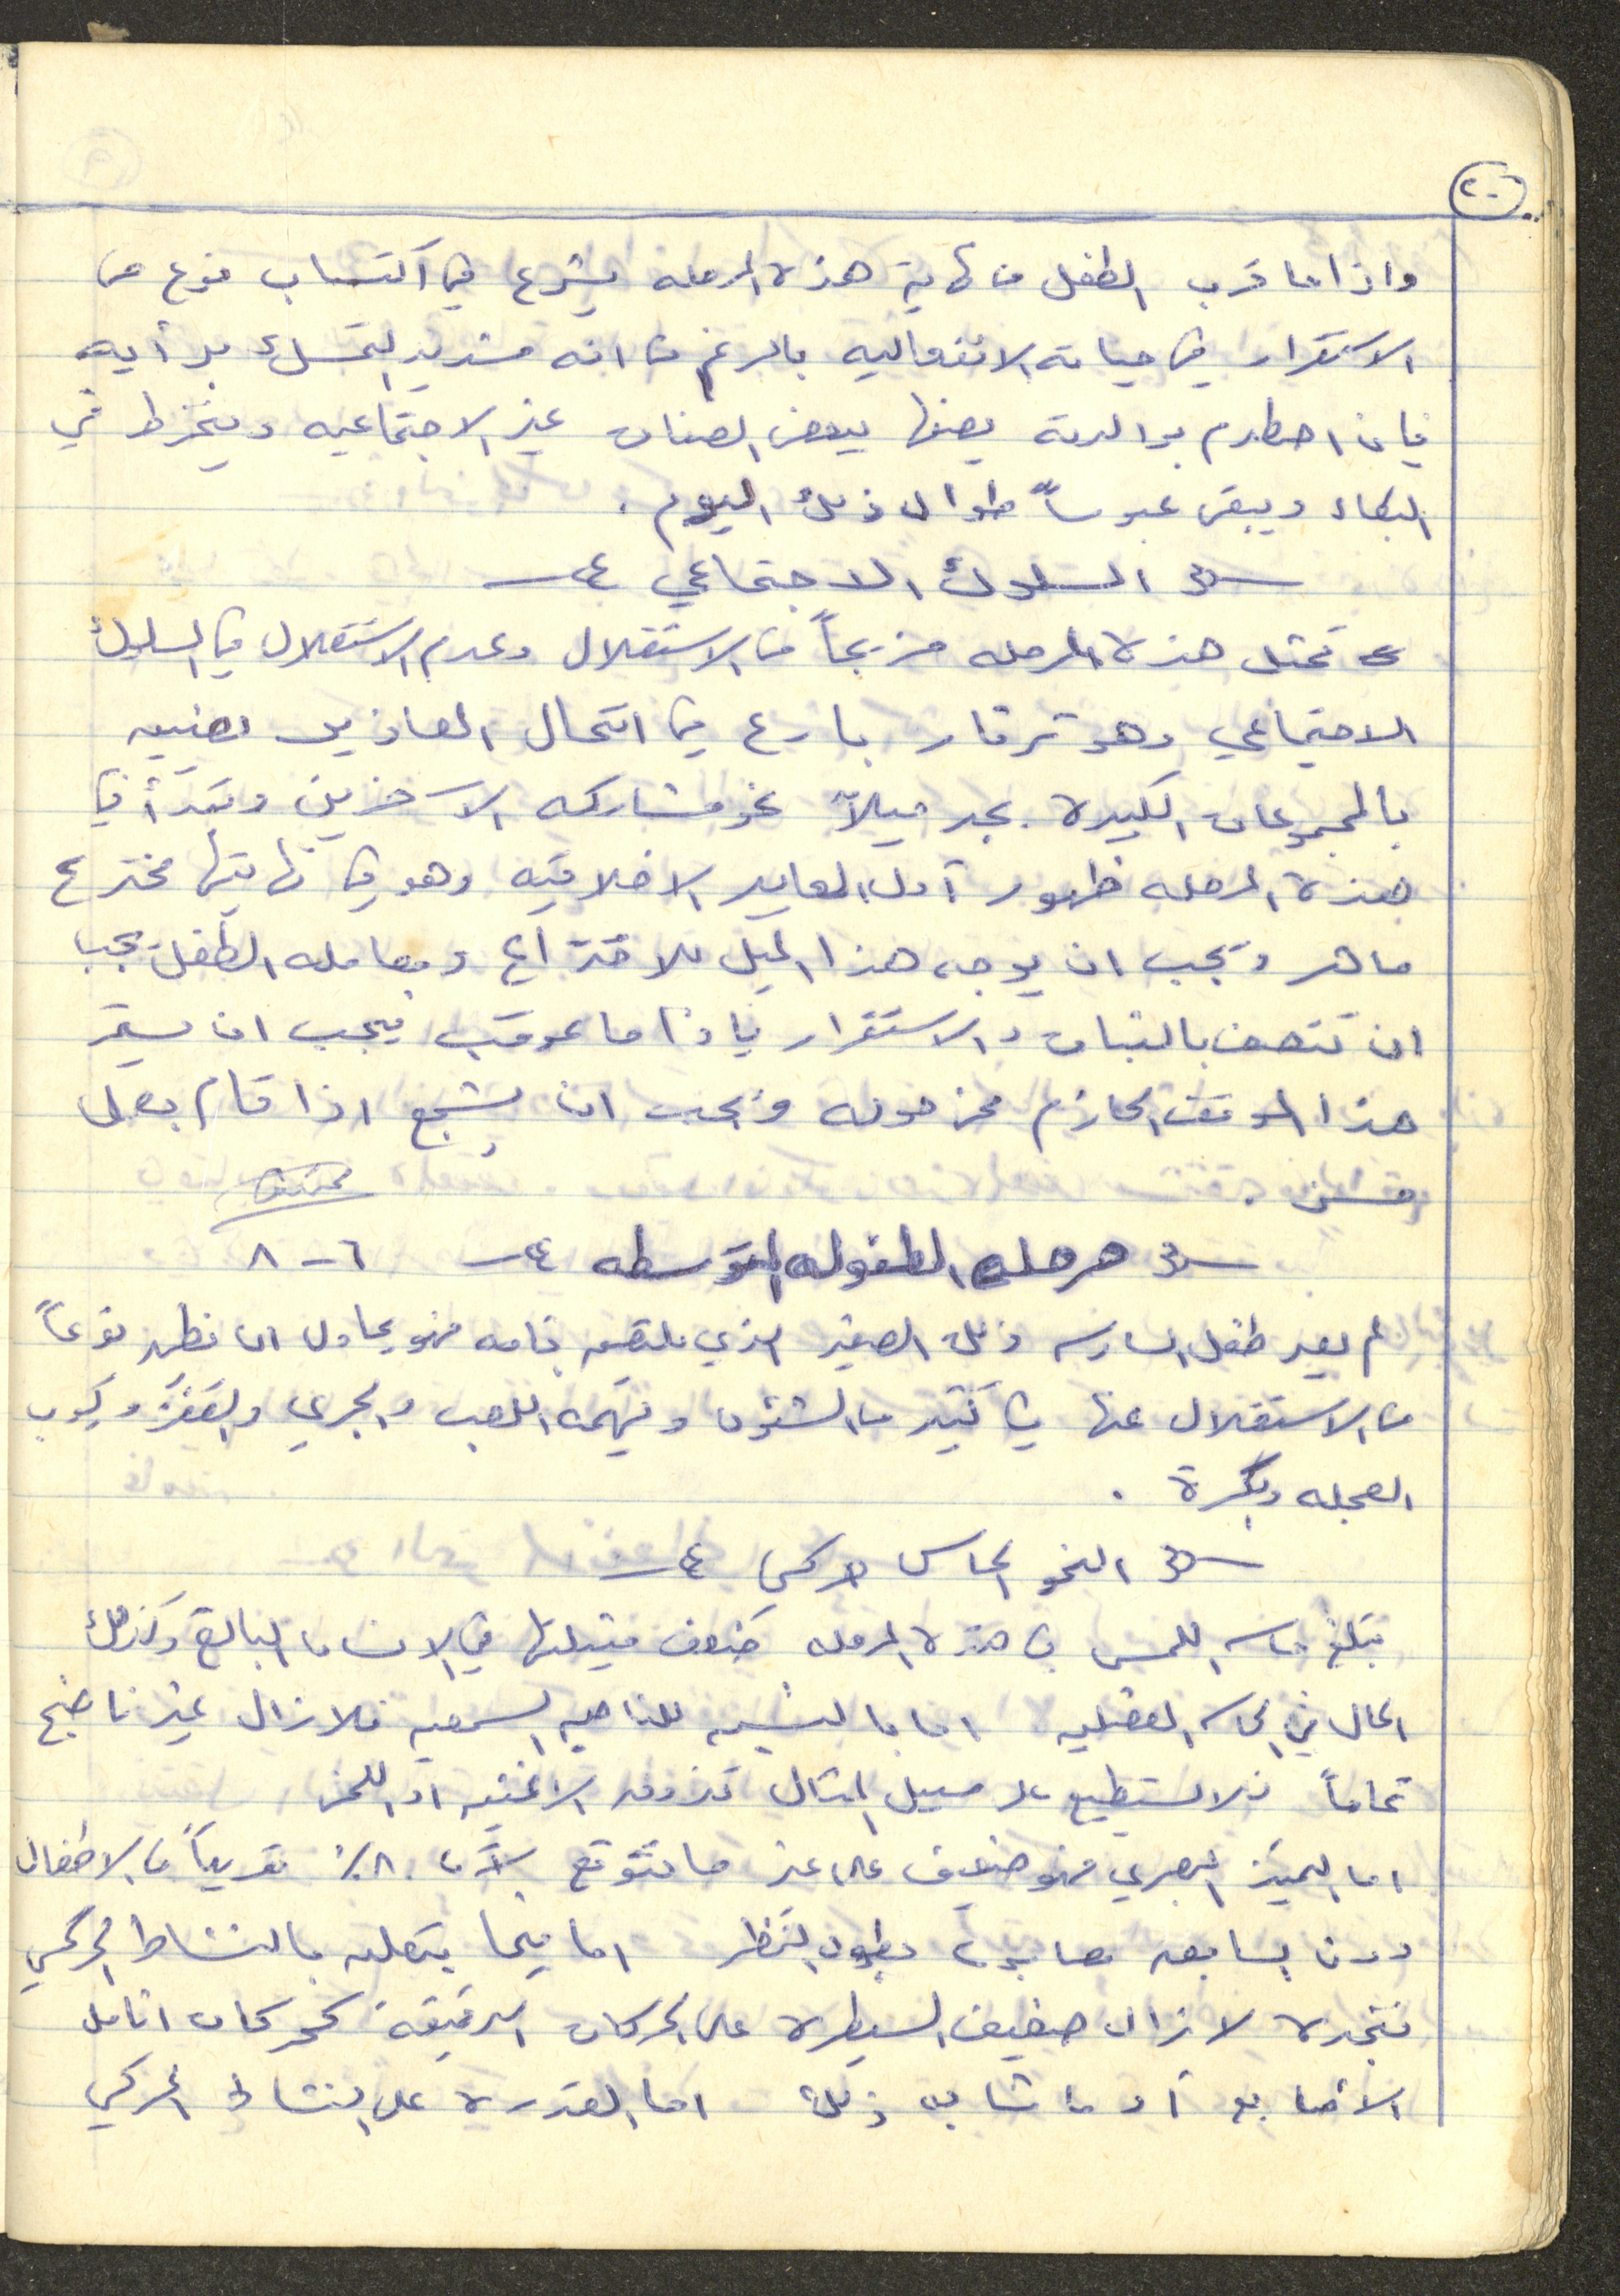 ٢٠
واذا ما قرب الطفل من نهاية هذه المرحله يشرع في اكتساب نوع من
الاستقرار في حياته الانفعاليه بالرغم من انه شديد التمسك برأيه
فإن اصطدم بوالدته يصفها ببعض الصفات غير الاجتماعيه وينخرط في
البكاء ويبقى عبوساً طوال ذلك اليوم .
السلوك الاجتماعي
تمثل هذه المرحله مزيجاً من الاستقلال وعدم الاستقلال في السلوك
الاجتماعي وهو ثرثار بارع في انتحال المعاذير يضيق
بالمجموعات الكبيرة يجد ميلاً نحو مشاركه الآخرين وتبدأ في
هذه المرحله ظهور أول المعايير الاخلاقيه وهو في نهايتها مخترع
ماهر ويجب ان يوجه هذا الميل للاختراع ومعامله الطفل يجب
ان تتصف بالثبات والاستقرار فإذا ما عوقب فيجب ان يستمر
هذا الموقف الحازم نحوه ويجب ان يشجع اذا قام بعمل
حسن .
مرحله الطفوله المتوسطه ٦ - ٨
لم يعد طفل السادسه ذلك الصغير الذي يلتصق بأمه فهو يحاول ان يظهر نوعاً
من الاستقلال عنها في كثير من الشئون ويهمه اللعب والجري والقفز وركوب
العجله والكرة .
النمو الحاس حركي
تبلغ حاسه اللمس في هذه المرحله ضعف مثيلتها في الانسان البالغ وكذلك
الحال في الحاسه العضليه اما بالنسبه للناحيه السمعيه فلازال غير ناضج
تماماً فلا يستطيع على سبيل المثال تذوق الاغنيه او اللحن
اما التمييز البصري فهو ضعيف على غير ما نتوقع لأن ٨٠٪ تقريباً من الاطفال
دون السابعه مصابون بطول النظر اما فيما يتعلق بالنشاط الحركي
فنجده لازال ضعيف السيطرة على الحركات الدقيقة كحركات انامل
الأصابع أو ما شابه ذلك اما القدرة على النشاط الحركي